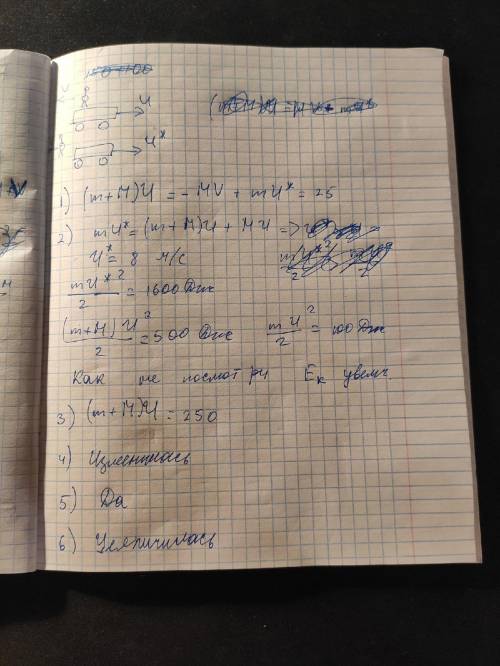 U
U*
1) (m+M)U = -MV + mU* = 25
2) mU* = (m+M)U + MU =>
U* = 8 м/с
mU*²/2 = 1600 Дж
(m+M)U²/2 = 500 Дж mU²/2 = 100 Дж
Как не посмотри Eк увелич.
3) (m+M)U = 250
4) Изменилась
5) Да
6) Увеличилась